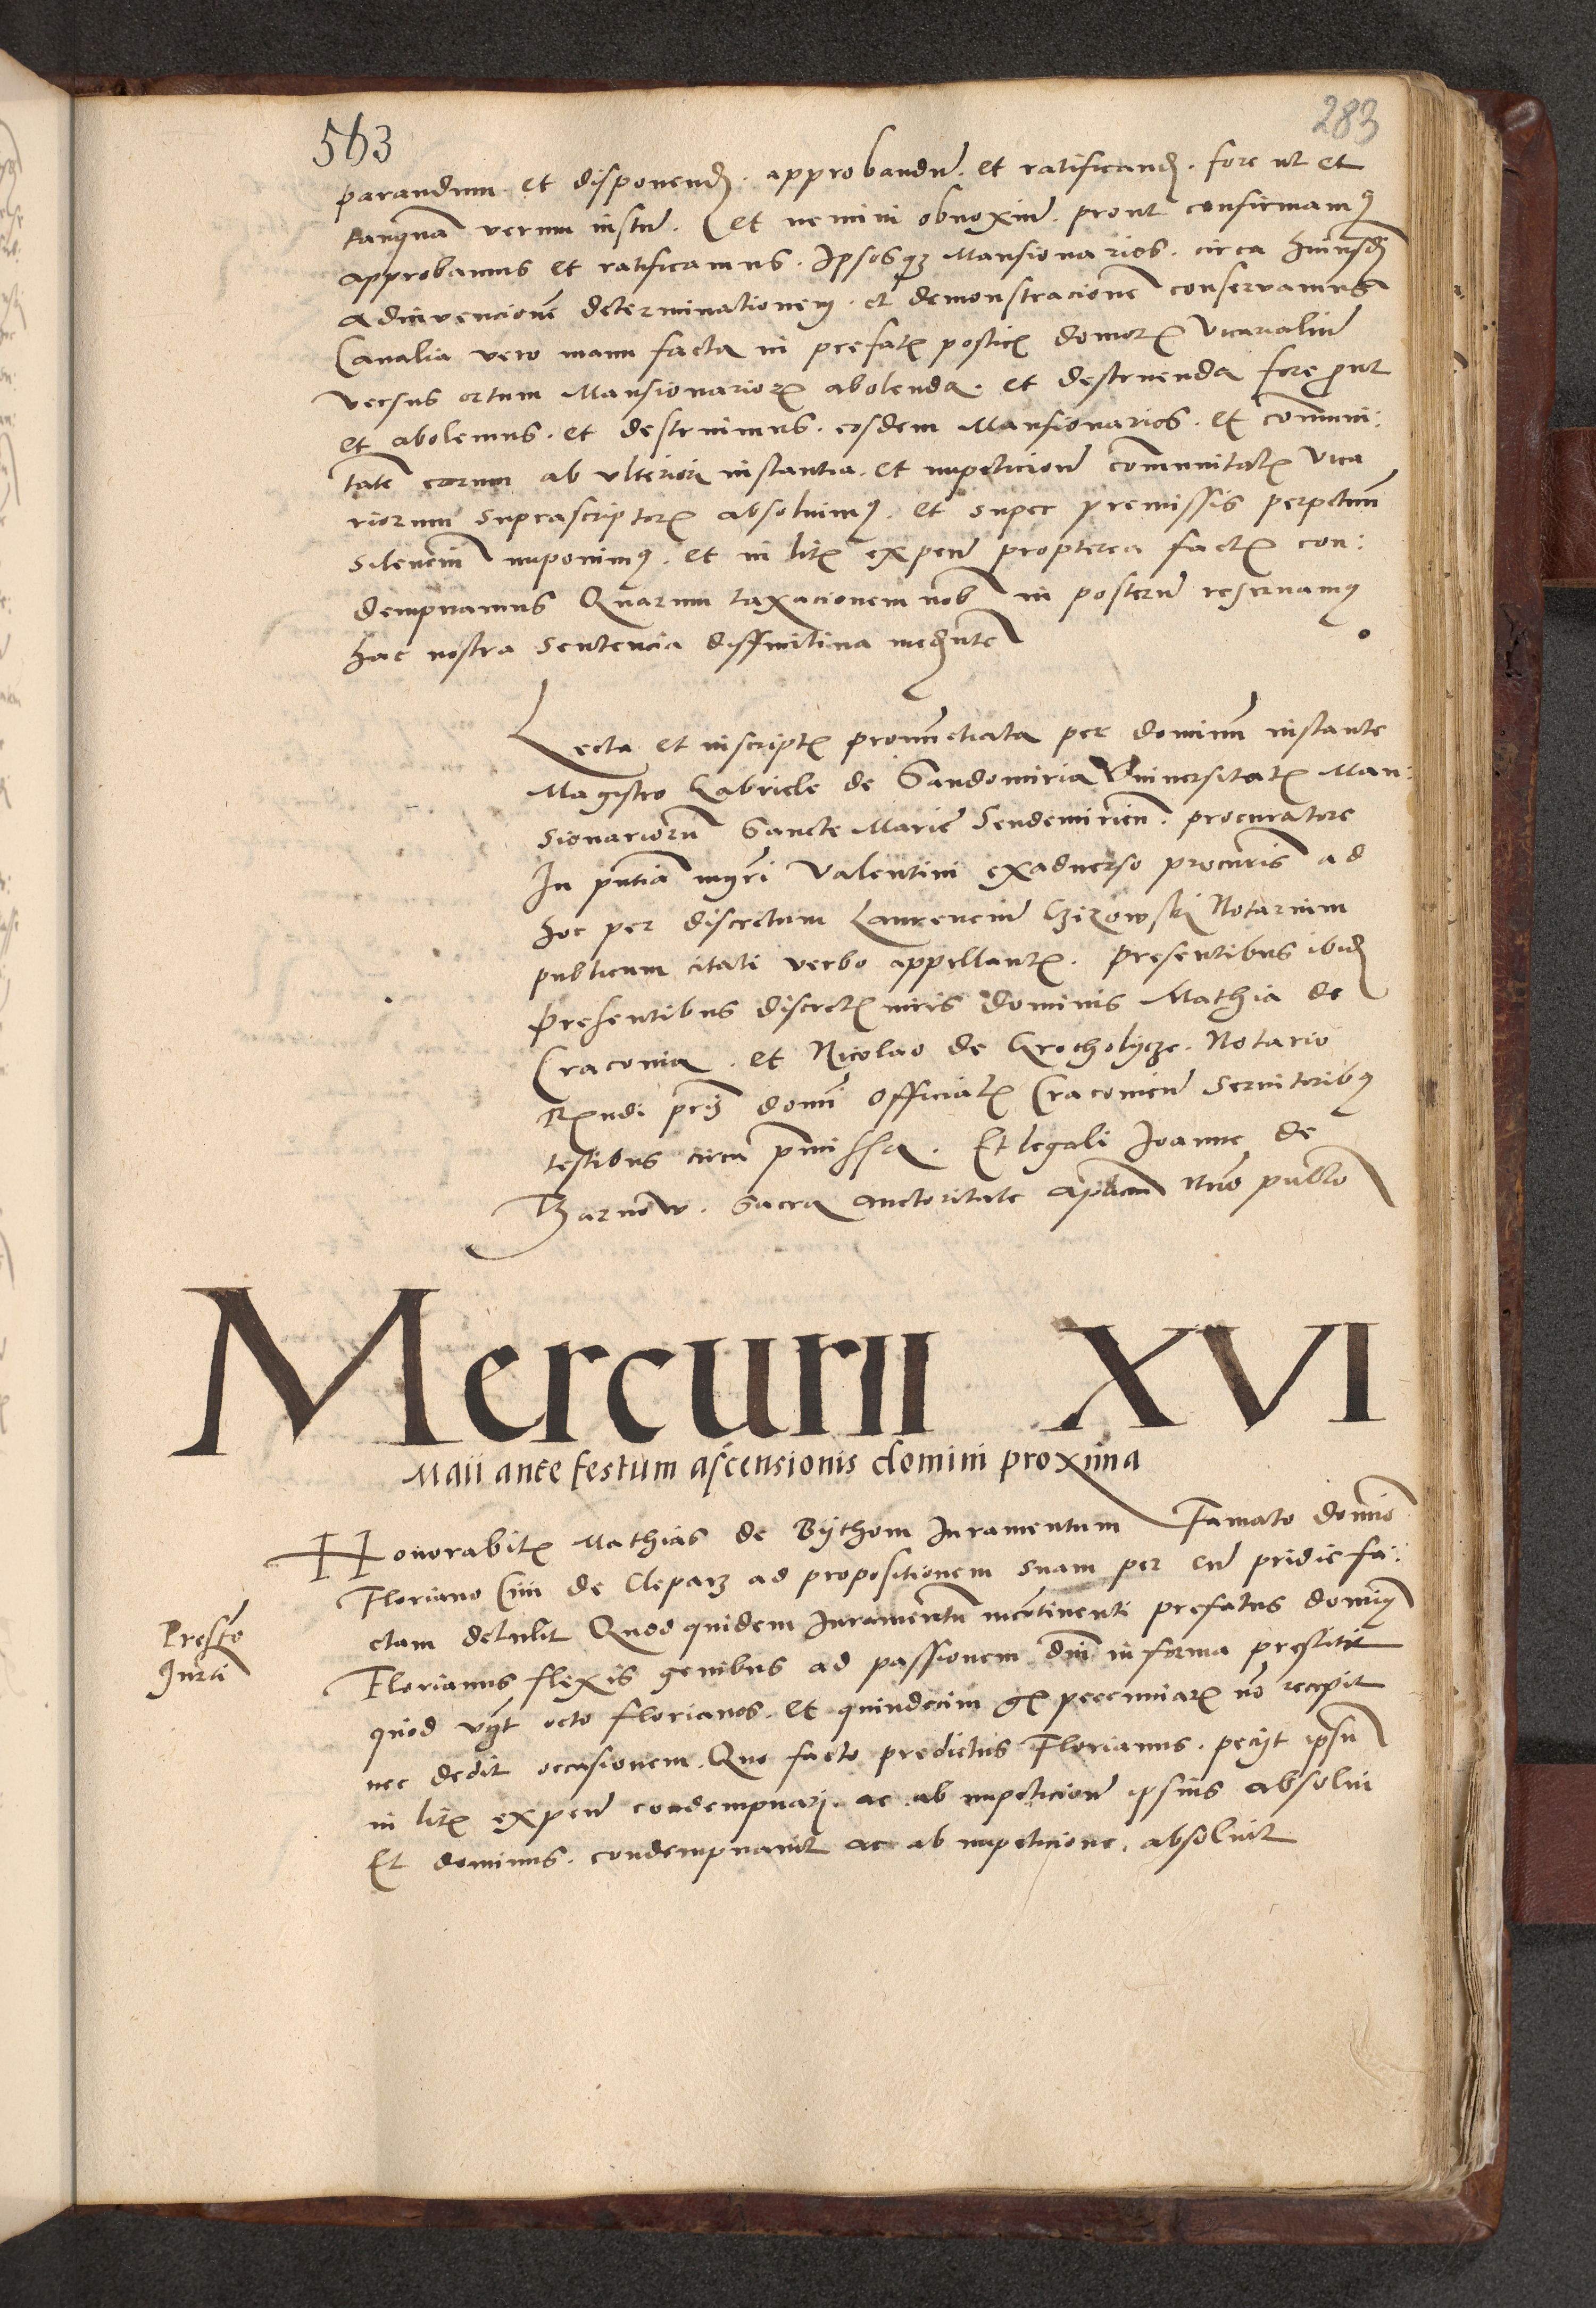 563
283
parandum et disponend. approbandu. et ratificand. fore ut et
tanquam verum iustu. et nemini obnoxiu. prout confirmamus
approbamus et ratificamus. Ipsosque Mansionarios. circa huiusdi
adinvencione determinationem. et demonstracione conservamus
Canalia vero manu facta in prefatis posticis domorum vicarialiu
versus ortum Mansionariorum abolenda. et destruenda fore prout
et abolemus. et destruimus. eosdem Mansionarios. et communi:
tate eorum ab ulteriori instantia. et impeticione communitatis vica
riorum suprascriptorum absoluimus. et super premissis perpetuum
silencium imponimus. et in litis expen propterea factis con:
dempnamus Quarum taxacionem nob in posteru reservamus
hac nostra sentencia diffinitiva mediante
Lecta et in scriptis pronunctiata per dominum instante
Magistro Gabriele de Sandomiria Universitatis Man:
sionariorum Sancte Marie Sendomirien. procuratore
In pntia mgri Valentini exadverso procuris ad
hoc per discretum Laurenciu Czizowski Notarium
publicum citati verbo appellantis. presentibus ibid
presentibus discretis viris dominis Mathia de
Cracovia. et Nicolao de Grocholycze. Notario
Rendi pris domi Officialis Cracovien servitoribus
testibus circa pmissa. Et legali Joanne de
Tarnow. sacra auctoritate aplica Ntrio publco
Mercurii XVI
Maii ante festum ascensionis domini proxima
Honorabilis Mathias de Bythom Iuramentum Famato domio
Floriano Cini de Cleparz ad propositionem suam per eu pridie fa:
ctam detulit Quod quidem Iuramentu incontinenti prefatus dominus
Florianus flexis genibus ad passionem dni in forma prestitit
quod vgt octo florianos. et quindecim gr pecuniarum no recepit
nec dedit occasionem. Quo facto predictus Florianus. pecyt ipsu
in litis expen condempnari. ac ab impeticione ipsius absolvi
Et dominus. condempnavit ac ab impeticione. absolvit
Presto
Iurti